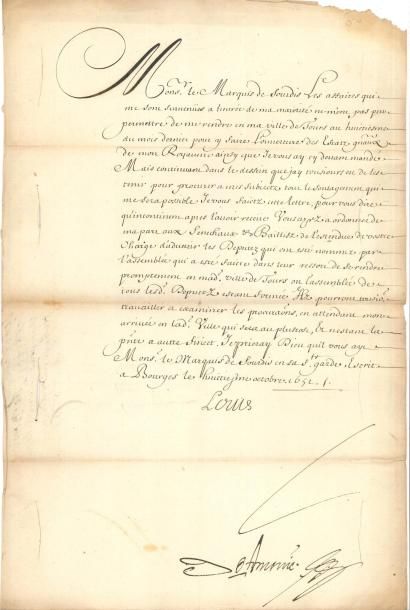 Mons.r le Marquis de Sourdis Les affaires qui
me sont survenues a l'entrée de ma majorité ne m'ont pas peu
permettre de me rendre en ma ville de Tours au huictiesme
du mois dernier pour y faire l'ouverture des Estatz gnaux
de mon Royaume ainsy que Je vous ay cy devant mandé
Mais continuant dans le dessein que j'ay tousiours eu de les
tenir pour procurer a mes subiectz tout le soulagement qui
me sera possible Je vous faictz cette lettre, pour vous dire
qu'incontinent apres l'avoir receue Vous ayez a ordonner de
ma part aux Seneschaux et Baillifz de l'estendue de vostre
Charge d'advertir les Deputez qui ont esté nommez par
l'assemblée qui a esté faicte dans leur ressort de se rendre
promptement en mad. ville de Tours ou l'assemblée de
tous lesd. Deputez estant formée Ilz pourront tousio.
travailler a examiner les procurations, en attendant mon
arrivée en lad. Ville qui sera au plustost, Et n'estant la
p'nte a autre fin, Je prieray Dieu qu'il vous aye
Mons.r le Marquis de Sourdis en sa s.te garde Escrit
a Bourges le huictie.me octobre 1651 .
Louis